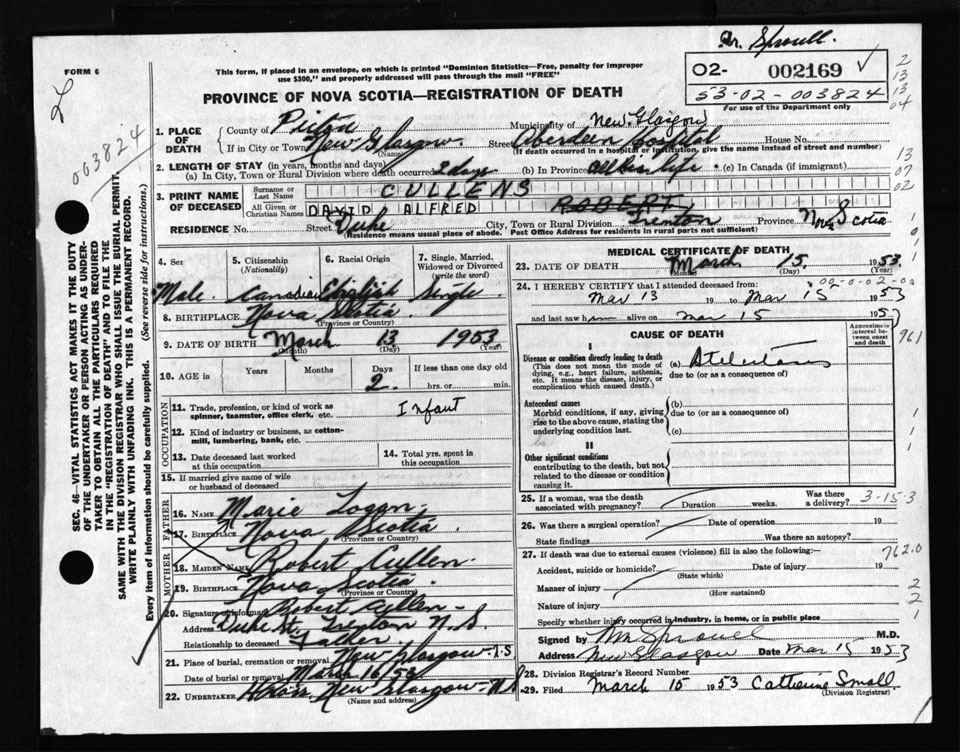 Dr. Sproull
FORM 6
This form, if placed in an envelope, on which is printed "Dominion Statistics—Free, penalty for improper
use $300," and properly addressed will pass through the mail "FREE"
02- 002169 ✓
53-02-003824
For use of the Department only
PROVINCE OF NOVA SCOTIA—REGISTRATION OF DEATH
003824
2
13
13
04
1. PLACE OF DEATH
County of Pictou Municipality of New Glasgow
If in City or Town New Glasgow (Name) Street Aberdeen Hospital House No.
(If death occurred in a hospital or institution, give the name instead of street and number)
2. LENGTH OF STAY (in years, months and days)
(a) In City, Town or Rural Division where death occurred 2 days (b) In Province all his life (c) In Canada (if immigrant)
13
07
02
3. PRINT NAME OF DECEASED
Surname or Last Name CULLENS
All Given or Christian Names DAVID ALFRED ROBERT
RESIDENCE No. Street Duke City, Town or Rural Division Trenton Province Nova Scotia
(Residence means usual place of abode. Post Office Address for residents in rural parts not sufficient)
4. Sex Male
5. Citizenship (Nationality) Canadian
6. Racial Origin English
7. Single, Married, Widowed or Divorced (write the word) Single
8. BIRTHPLACE Nova Scotia
(Province or Country)
9. DATE OF BIRTH March 13 1953
(Month) (Day) (Year)
10. AGE in Years Months Days 2 If less than one day old
hrs. or min.
OCCUPATION
11. Trade, profession, or kind of work as spinner, teamster, office clerk, etc. Infant
12. Kind of industry or business, as cotton-mill, lumbering, bank, etc.
13. Date deceased last worked at this occupation
14. Total yrs. spent in this occupation
15. If married give name of wife or husband of deceased
FATHER
16. NAME Marie Logan
17. BIRTHPLACE Nova Scotia
(Province or Country)
MOTHER
18. MAIDEN NAME Robert Cullen
19. BIRTHPLACE Nova Scotia
(Province or Country)
20. Signature of informant Robert Cullen
Address Duke St. Trenton N.S.
Relationship to deceased Father
21. Place of burial, cremation or removal New Glasgow N.S
Date of burial or removal March 16/53
22. UNDERTAKER New Glasgow N.S
(Name and address)
MEDICAL CERTIFICATE OF DEATH
23. DATE OF DEATH March 15 1953
(Month) (Day) (Year)
24. I HEREBY CERTIFY that I attended deceased from:
02-0-002-00
Mar 13 19 to Mar 15 1953
and last saw him alive on Mar 15 1953
CAUSE OF DEATH
Approximate interval between onset and death
961
I
Disease or condition directly leading to death
(This does not mean the mode of dying, e.g., heart failure, asthenia, etc. It means the disease, injury, or complication which caused death.)
(a) Atelectasis
due to (or as a consequence of)
Antecedent causes
Morbid conditions, if any, giving rise to the above cause, stating the underlying condition last.
(b)
due to (or as a consequence of)
(c)
II
Other significant conditions
contributing to the death, but not related to the disease or condition causing it.
25. If a woman, was the death associated with pregnancy? Duration weeks. Was there a delivery? 3-15-3
26. Was there a surgical operation? Date of operation 19
State findings Was there an autopsy?
27. If death was due to external causes (violence) fill in also the following:—
762.0
Accident, suicide or homicide? Date of injury 19
(State which)
Manner of injury
(How sustained)
Nature of injury
Specify whether injury occurred in industry, in home, or in public place
Signed by Wm Sproull M.D.
Address New Glasgow Date Mar 15 1953
28. Division Registrar's Record Number
29. Filed March 15 1953 Catherine Small
(Division Registrar)
SEC. 46—VITAL STATISTICS ACT MAKES IT THE DUTY
OF THE UNDERTAKER OR PERSON ACTING AS UNDER-
TAKER TO OBTAIN ALL THE PARTICULARS REQUIRED
IN THE "REGISTRATION OF DEATH" AND TO FILE THE
SAME WITH THE DIVISION REGISTRAR WHO SHALL ISSUE THE BURIAL PERMIT.
WRITE PLAINLY WITH UNFADING INK. THIS IS A PERMANENT RECORD.
Every item of information should be carefully supplied. (See reverse side for instructions.)